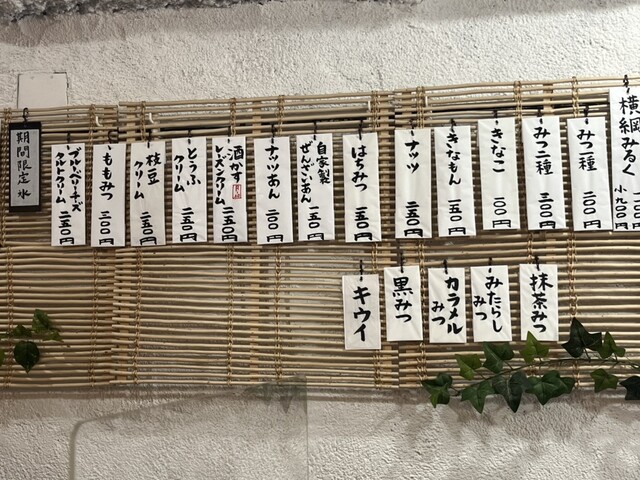 横綱みるく
小九〇〇
みつ一種 二〇〇円
みつ二種 三〇〇円
きなこ 一〇〇円
きなもん 一五〇円
ナッツ 二五〇円
はちみつ 二五〇円
自家製
ぜんざいあん 一五〇円
ナッツあん 二〇〇円
酒かす
レーズンクリーム 二五〇円
とうふ
クリーム 二五〇円
枝豆
クリーム 二五〇円
ももみつ 三〇〇円
ブルーベリーチーズ
タルトクリーム 二五〇円
期間限定氷
抹茶みつ
みたらし
みつ
カラメル
みつ
黒みつ
キウイ